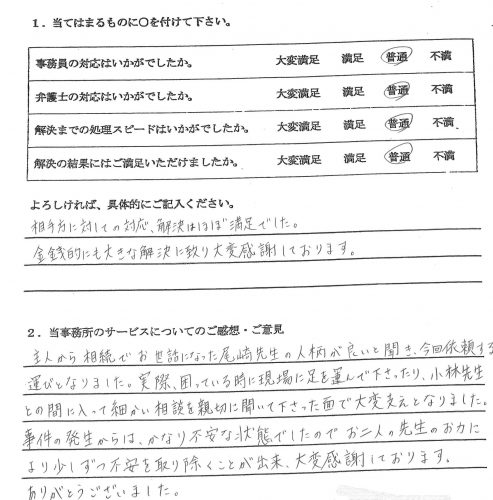 1．当てはまるものに〇を付けて下さい。
事務員の対応はいかがでしたか。 大変満足 満足 普通 不満
弁護士の対応はいかがでしたか。 大変満足 満足 普通 不満
解決までの処理スピードはいかがでしたか。 大変満足 満足 普通 不満
解決の結果にはご満足いただけましたか。 大変満足 満足 普通 不満
よろしければ、具体的にご記入ください。
相手方に対しての対応、解決はほぼ満足でした。
金銭的にも大きな解決に致り大変感謝しております。
2．当事務所のサービスについてのご感想・ご意見
主人から相続でお世話になった尾崎先生の人柄が良いと聞き、今回依頼する
運びとなりました。実際、困っている時に現場に足を運んで下さったり、小林先生
との間に入って細かい相談を親切に聞いて下さった面で大変支えとなりました。
事件の発生からは、かなり不安な状態でしたのでお二人の先生のお力に
より少しずつ不安を取り除くことが出来、大変感謝しております。
ありがとうございました。